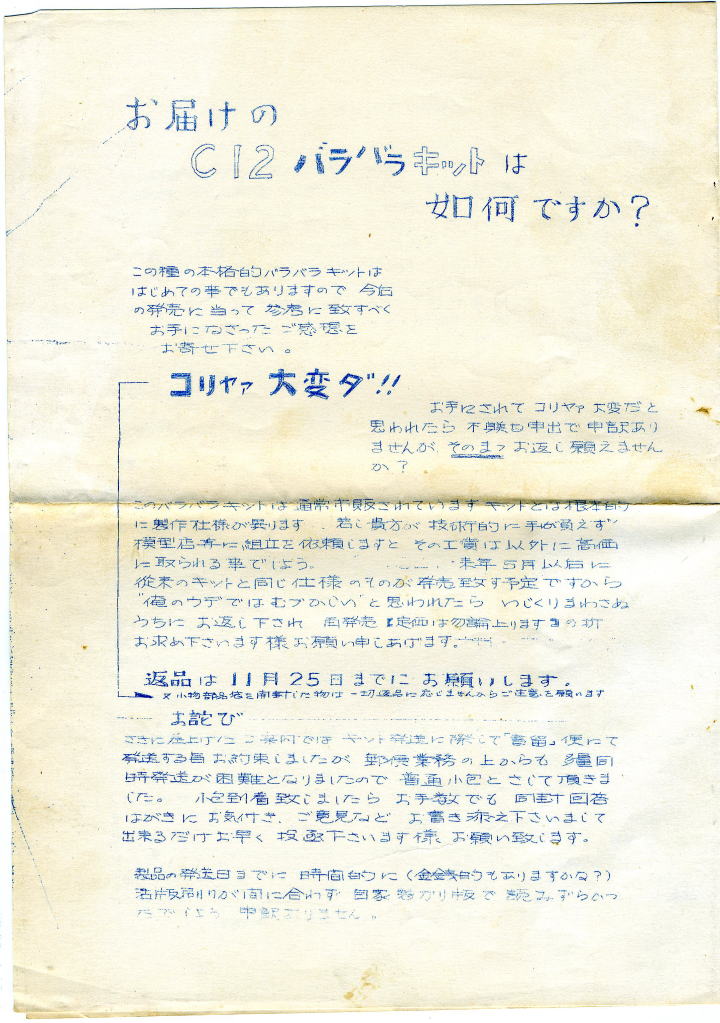 お届けの
C12 バラバラキットは
如何ですか?
この種の本格的バラバラキットは
はじめての事でもありますので 今后
の発売に当って 参考に致すべく
お手になさった ご感想を
お寄せ下さい。
コリャァ 大変ダ!!
お手にされて コリャァ 大変だと
思われたら 不躾な申出で申訳あり
ませんが、そのまゝお返し願えません
か?
このバラバラキットは通常市販されていますキットとは根本的
に製作仕様が異ります、若し貴方が技術的に手が負えず
模型店等に組立を依頼しますと その工賃は以外に高価
に取られる事でしょう。 来年5月以后に
従来のキットと同じ仕様のものが発売致す予定ですから
"俺のウデではむづかしい"と思われたら いじくりまわさぬ
うちに お返し下され 再発売(定価は勿論上ります)の折
お求め下さいます様お願い申しあげます。
返品は11月25日までにお願いします。
※小物部品袋を開封した物は一切返品に応じませんからご注意を願います
お詫び
さきに差上げたご案内では キット発送に際して「書留」便にて
発送する旨お約束しましたが 郵便業務の上からも 多量同
時発送が困難となりましたので 普通小包とさして頂きま
した。 小包到着致しましたら お手数でも 同封回答
はがきに お気付き、ご意見など お書き添え下さいまして
出来るだけお早く 投函下さいます様、お願い致します。
製品の発送日までに 時間的に(金銭的もありますかな?)
活版刷りが間に合わず 自家製ガリ版で 読みずらかっ
たでしょう 申訳ありません。